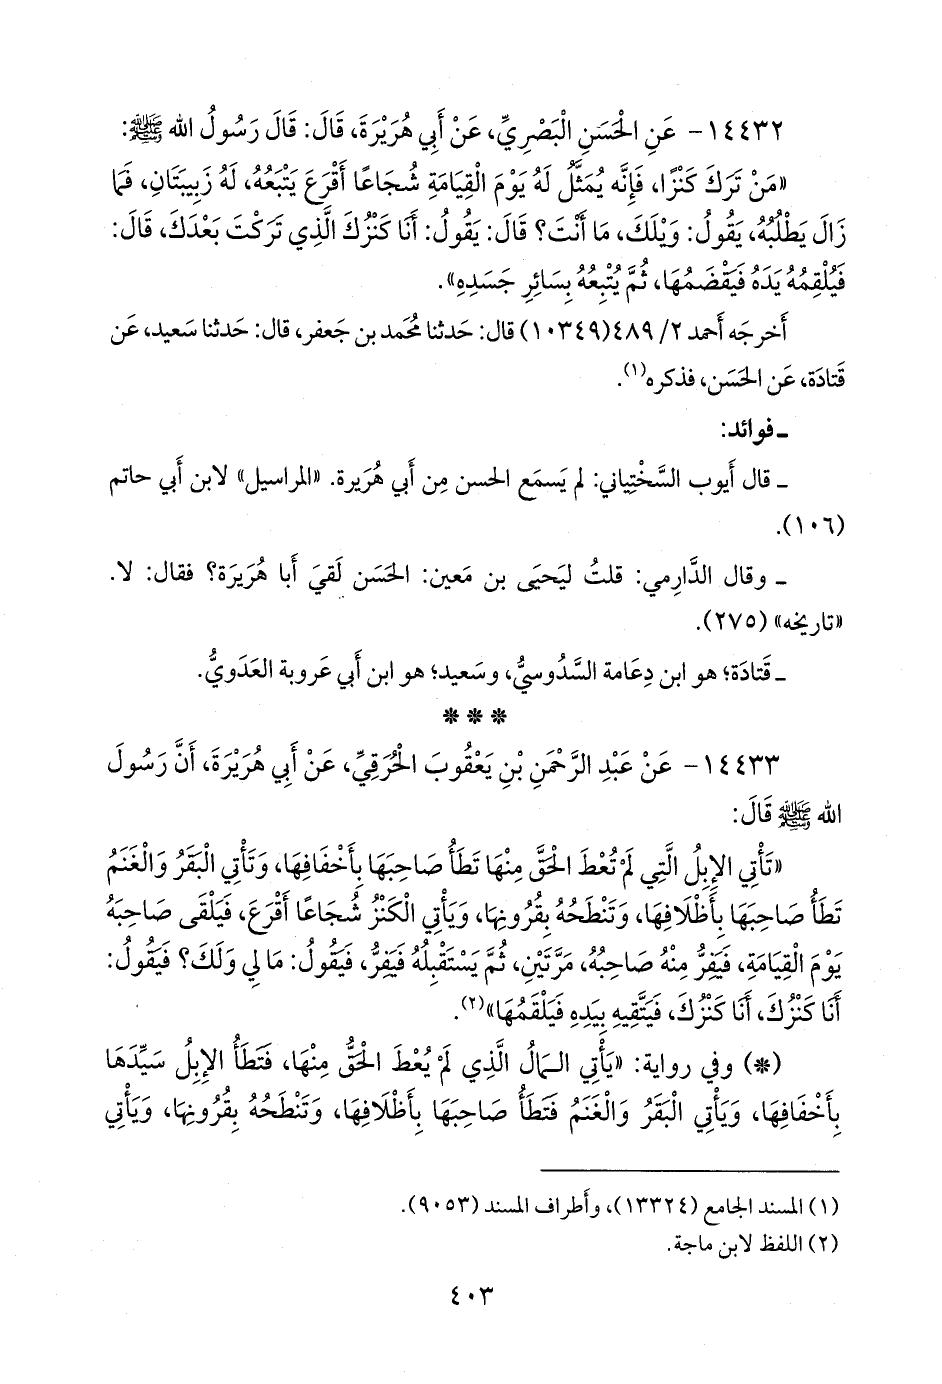 ١٤٤٣٢- عَنِ الْحَسَنِ الْبَصْرِيِّ، عَنْ أَبِي هُرَيْرَةَ، قَالَ: قَالَ رَسُولُ الله ﷺ:
«مَنْ تَرَكَ كَنْزًا، فَإِنَّه يُمَثَّلُ لَهُ يَوْمَ الْقِيَامَةِ شُجَاعًا أَقْرَعَ يَتْبَعُهُ، لَهُ زَبِيبَتَانِ، فَمَا
زَالَ يَطْلُبُهُ، يَقُولُ: وَيْلَكَ، مَا أَنْتَ؟ قَالَ: يَقُولُ: أَنَا كَنْزُكَ الَّذِي تَرَكْتَ بَعْدَكَ، قَالَ:
فَيُلْقِمُهُ يَدَهُ فَيَقْضَمُهَا، ثُمَّ يُتْبِعُهُ بِسَائِرِ جَسَدِهِ».
أَخرجَه أَحمد ٢/ ٤٨٩(١٠٣٤٩) قال: حَدثنا مُحَمد بن جَعفر، قال: حَدثنا سَعيد، عَن
قَتادَة، عَن الحَسَن، فذكره(١).
ـ فوائد:
ـ قال أَيوب السَّختِياني: لم يَسمَع الحسن مِن أَبي هُرَيرة. «المراسيل» لابن أَبي حاتم
(١٠٦).
ـ وقال الدَّارِمي: قلتُ ليَحيَى بن مَعين: الحَسَن لَقيَ أَبا هُرَيرَة؟ فقال: لا.
«تاريخه» (٢٧٥).
ـ قَتادَة؛ هو ابن دِعَامة السَّدُوسيُّ، وسَعيد؛ هو ابن أَبي عَروبة العَدَويُّ.
* * *
١٤٤٣٣- عَنْ عَبْدِ الرَّحْمَنِ بْنِ يَعْقُوبَ الْحُرَقِيِّ، عَنْ أَبِي هُرَيْرَةَ، أَنَّ رَسُولَ
الله ﷺ قَالَ:
«تَأْتِي الإِبِلُ الَّتِي لَمْ تُعْطَ الْحَقَّ مِنْهَا تَطَأُ صَاحِبَهَا بِأَخْفَافِهَا، وَتَأْتِي الْبَقَرُ وَالْغَنَمُ
تَطَأُ صَاحِبَهَا بِأَظْلَافِهَا، وَتَنْطَحُهُ بِقُرُونِهَا، وَيَأْتِي الْكَنْزُ شُجَاعًا أَقْرَعَ، فَيَلْقَى صَاحِبَهُ
يَوْمَ الْقِيَامَةِ، فَيَفِرُّ مِنْهُ صَاحِبُهُ، مَرَّتَيْنِ، ثُمَّ يَسْتَقْبِلُهُ فَيَفِرُّ، فَيَقُولُ: مَا لِي وَلَكَ؟ فَيَقُولُ:
أَنَا كَنْزُكَ، أَنَا كَنْزُكَ، فَيَتَّقِيهِ بِيَدِهِ فَيَلْقَمُهَا»(٢).
(*) وفي رواية: «يَأْتِي الـمَالُ الَّذِي لَمْ يُعْطَ الْحَقُّ مِنْهَا، فَتَطَأُ الإِبِلُ سَيِّدَهَا
بِأَخْفَافِهَا، وَيَأْتِي الْبَقَرُ وَالْغَنَمُ فَتَطَأُ صَاحِبَهَا بِأَظْلَافِهَا، وَتَنْطَحُهُ بِقُرُونِهَا، وَيَأْتِي
(١) المسند الجامع (١٣٣٢٤)، وأَطراف المسند (٩٠٥٣).
(٢) اللفظ لابن ماجة.
٤٠٣